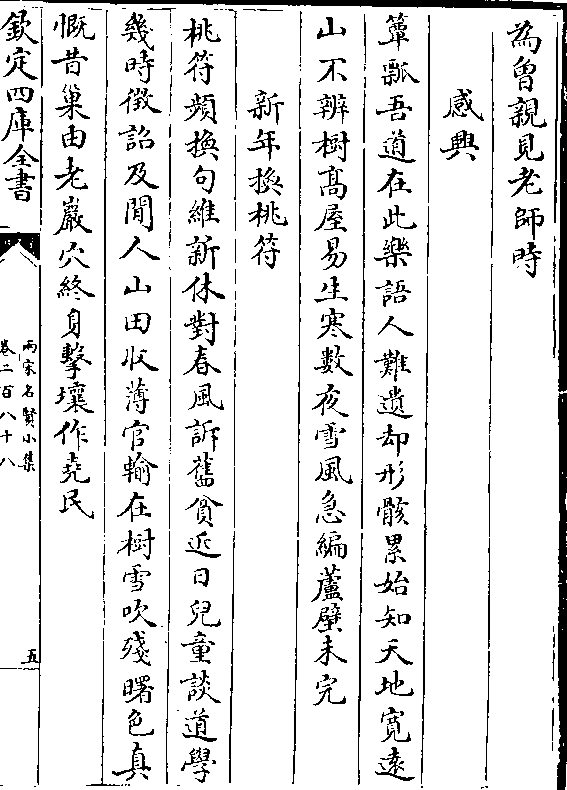 為曾親見老師時
感興
簞瓢吾道在此樂語人難遺却形骸累始知天地寛遠
山不辨樹髙屋易生寒數夜雪風急編蘆壁未完
新年換桃符
桃符頻換句維新休對春風訴舊貧近日兒童談道學
幾時徵詔及閒人山田收薄官輸在樹雪吹殘曙色真
慨昔巢由老巖穴終身擊壤作堯民
欽定四庫全書
兩宋名賢小集
卷二百八十八
五